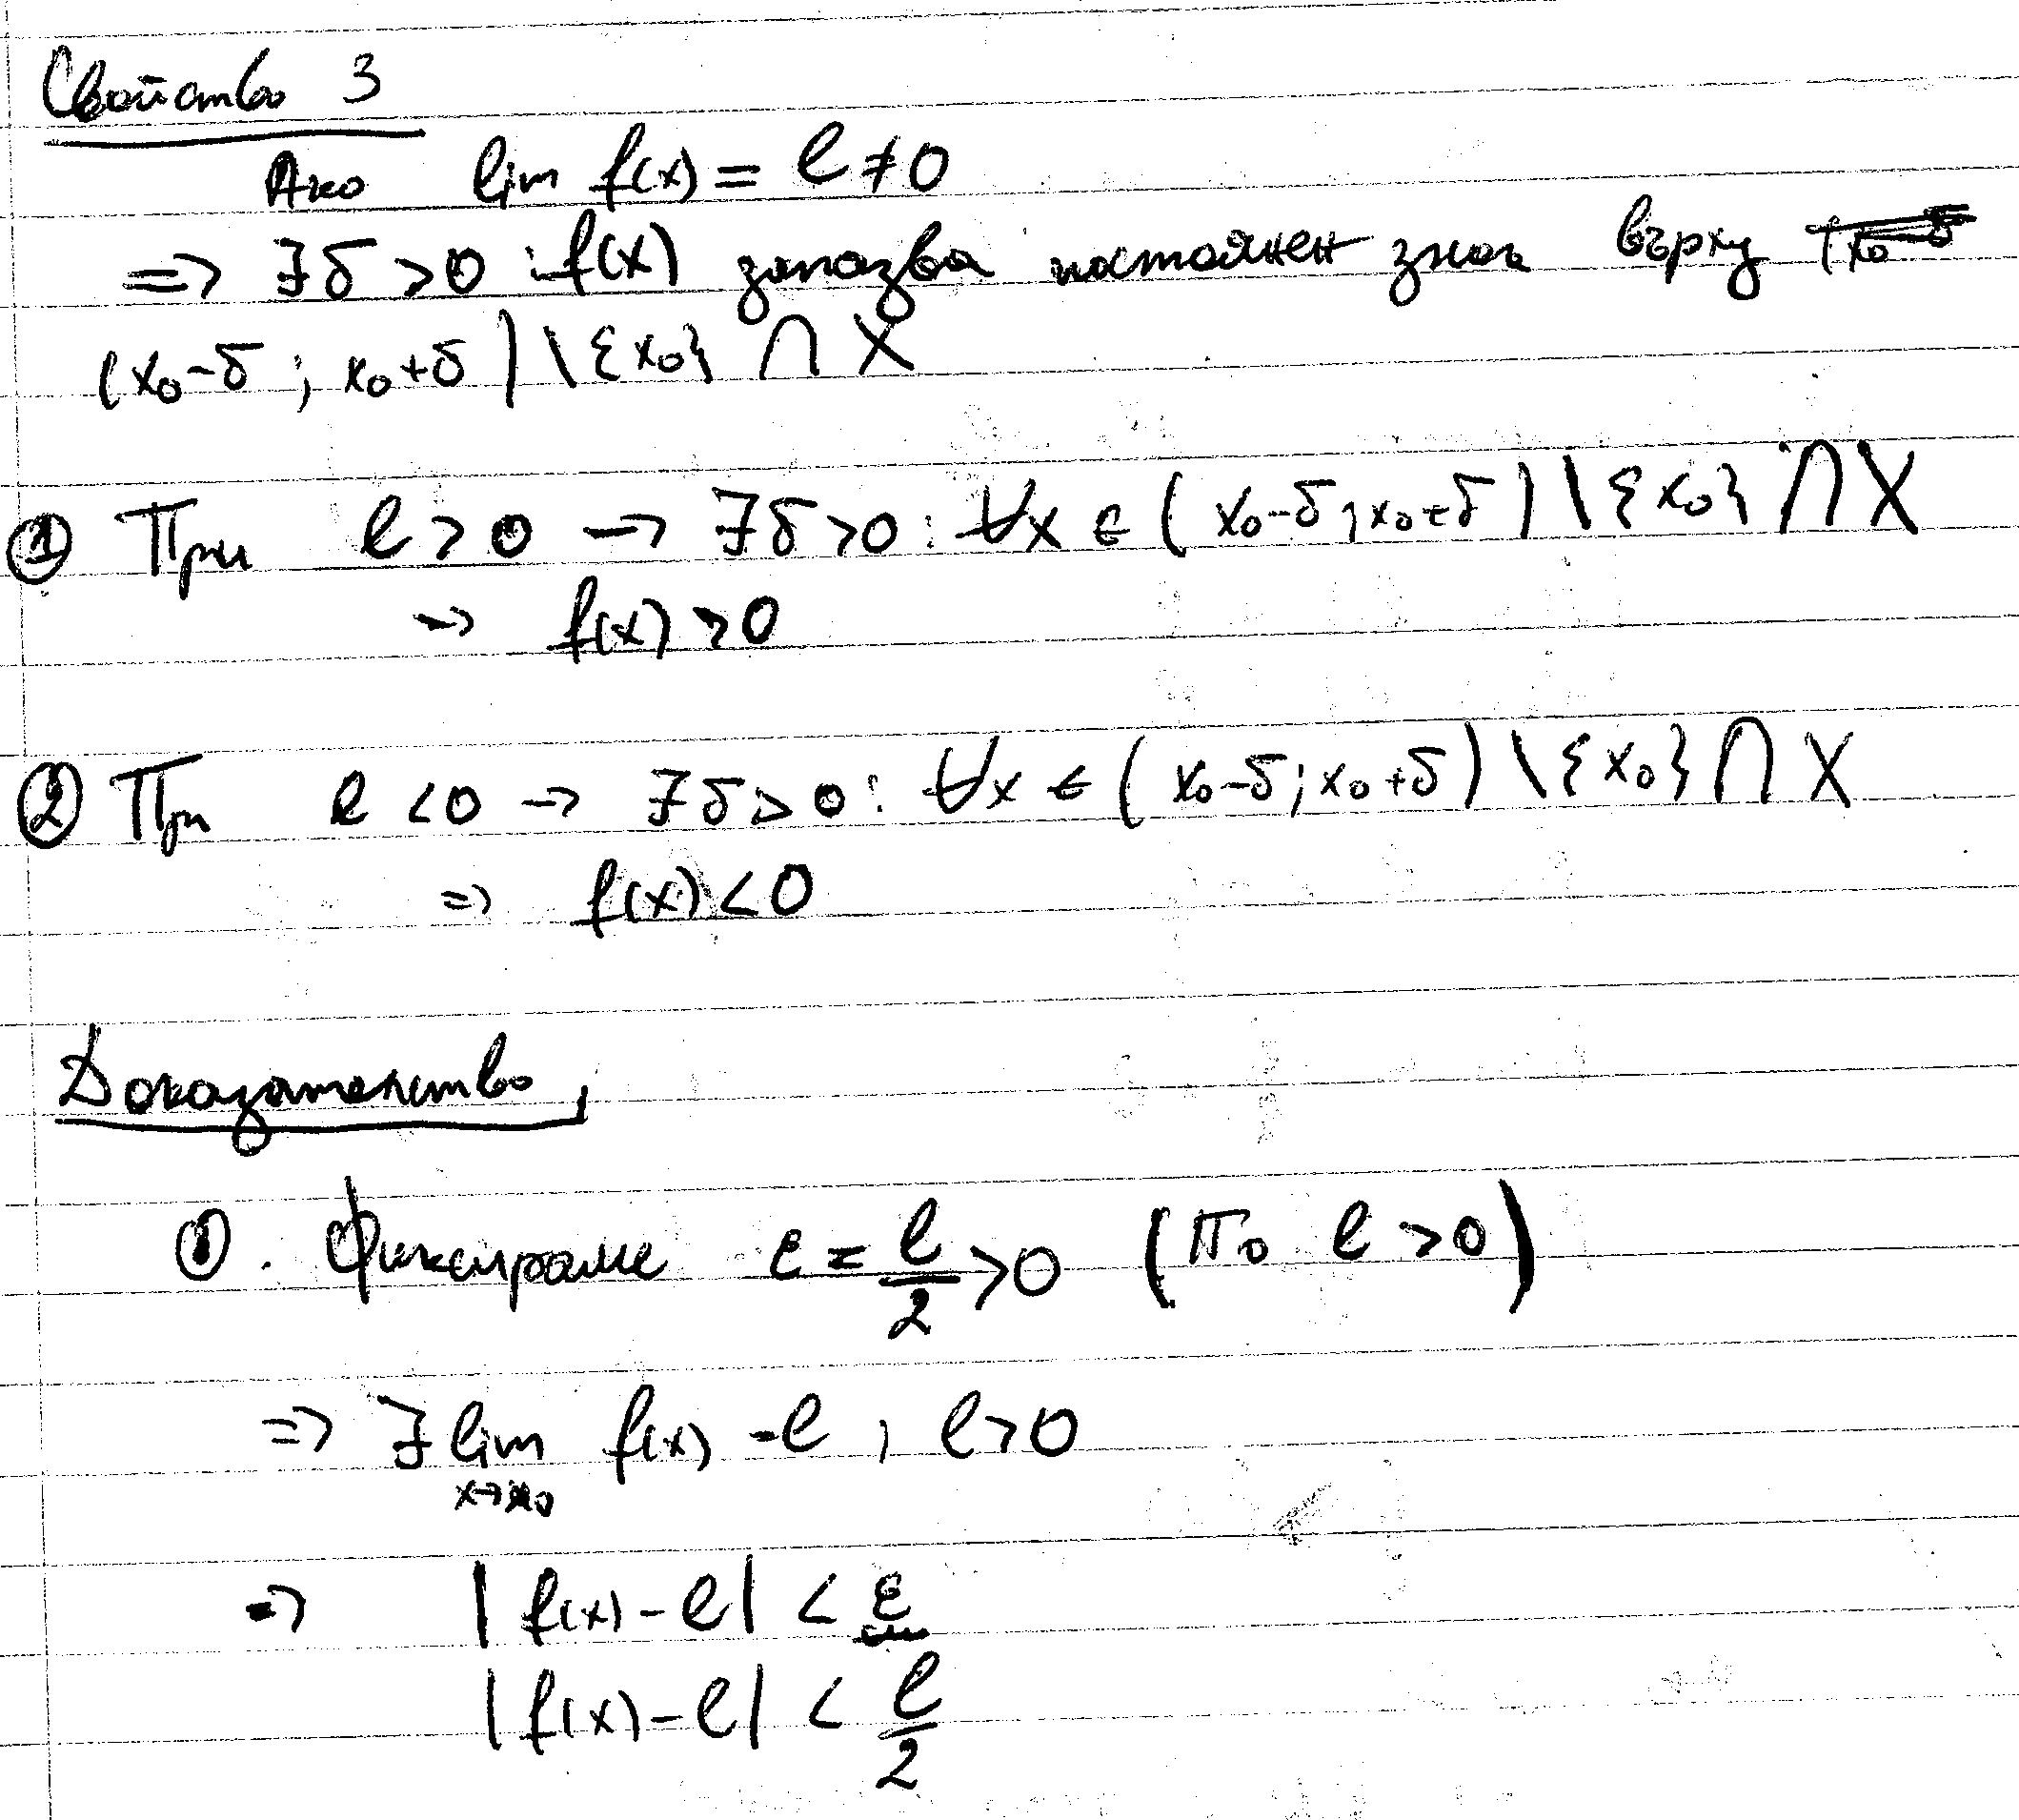 Свойство 3
Ако lim f(x) = l ≠ 0
=> ∃δ > 0 : f(x) запазва постоянен знак върху
(x₀-δ ; x₀+δ) \ {x₀} ∩ X
① При l > 0 → ∃δ > 0 : ∀x ∈ (x₀-δ ; x₀+δ) \ {x₀} ∩ X
=> f(x) > 0
② При l < 0 → ∃δ > 0 : ∀x ∈ (x₀-δ ; x₀+δ) \ {x₀} ∩ X
=> f(x) < 0
Доказателство,
①. Фиксираме ε = l/2 > 0 (По l > 0)
=> ∃ lim f(x) = l , l > 0
x→x₀
=> |f(x) - l| < ε
|f(x) - l| < l/2